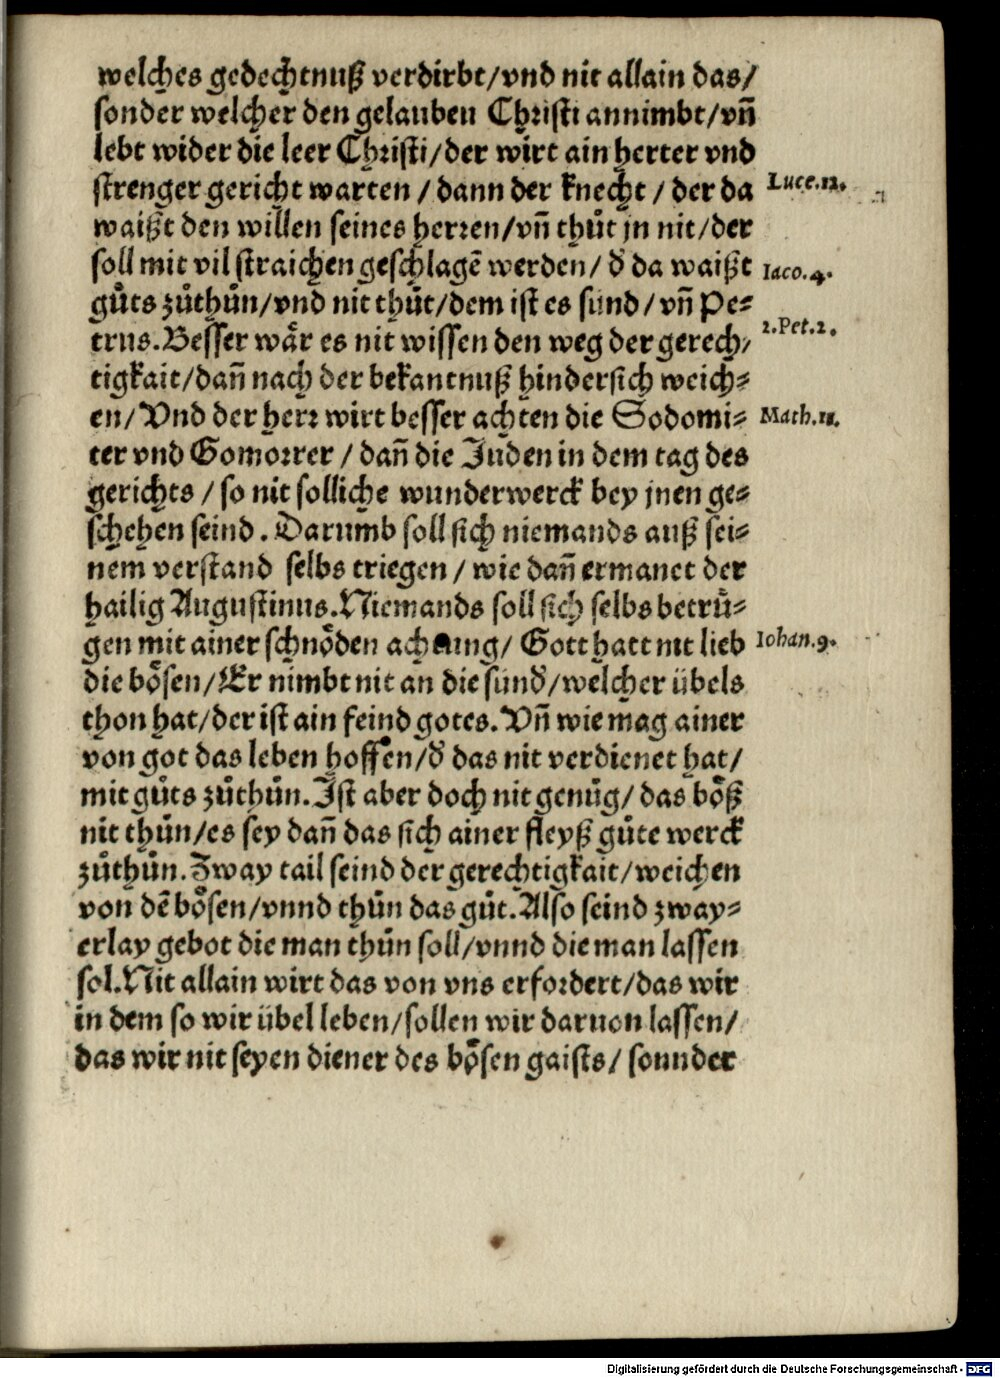 welches gedechtnuß verdirbt/vnd nit allain das/
sonder welcher den gelauben Christi annimbt/vñ
lebt wider die leer Christi/der wirt ain herter vnd
strenger gericht warten / dann der knecht / der da
Luce.12.
waißt den willen seines herren/vñ thůt jn nit/der
soll mit vil straichen geschlagē werden/ d' da waißt
Iaco.4.
gůts zůthůn/vnd nit thůt/dem ist es sünd/vñ Pe⸗
2.Pet.2.
trus.Besser wår es nit wissen den weg der gerech⸗
tigkait/dañ nach der bekantnuß hindersich weich⸗
en/Vnd der herr wirt besser achten die Sodomi⸗
Math.11.
ter vnd Gomorrer / dañ die Juden in dem tag des
gerichts / so nit solliche wunderwerck bey jnen ge⸗
schehen seind . Darumb soll sich niemands auß sei⸗
nem verstand selbs triegen / wie dañ ermanet der
hailig Augustinus.Niemands soll sich selbs betrü⸗
gen mit ainer schnöden achtung/ Gott hatt nit lieb
Iohan.9.
die bösen/Er nimbt nit an die sünd'/welcher übels
thon hat/der ist ain feind gotes.Vñ wie mag ainer
von got das leben hoffen/d' das nit verdienet hat/
mit gůts zůthůn.Ist aber doch nit genůg/das böß
nit thůn/es sey dañ das sich ainer fleyß gůte werck
zůthůn.Zway tail seind der gerechtigkait/weichen
von dē bösen/vnnd thůn das gůt.Also seind zway⸗
erlay gebot die man thůn soll/vnnd die man lassen
sol.Nit allain wirt das von vns erfordert/das wir
in dem so wir übel leben/sollen wir daruon lassen/
das wir nit seyen diener des bösen gaists/ sonnder
Digitalisierung gefördert durch die Deutsche Forschungsgemeinschaft - DFG